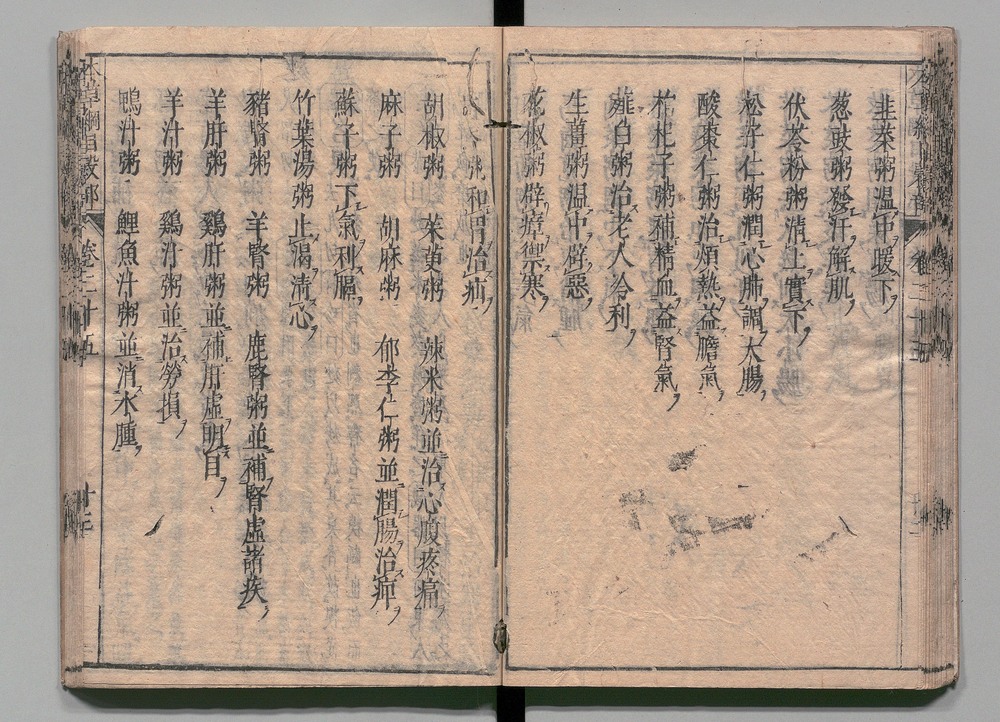 韭菜粥溫中暖下
葱豉粥發汗解肌
伏苓粉粥清上實下
松子仁粥潤心肺調大腸
酸棗仁粥治煩熱益膽氣
枸杞子粥補精血益腎氣
薤白粥治老人冷利
生薑粥溫中辟惡
花椒粥辟瘴禦寒
粥和胃治疝
胡椒粥　茱萸粥　辣米粥並治心腹疼痛
麻子粥　胡麻粥　郁李仁粥並潤腸治痺
蘇子粥下氣利膈
竹葉湯粥止渴清心
豬腎粥　羊腎粥　鹿腎粥並補腎虛諸疾
羊肝粥　鷄肝粥並補肝虛明目
羊汁粥　鷄汁粥並治勞損
鴨汁粥　鯉魚汁粥並消水腫
本草綱目穀部　卷之二十五